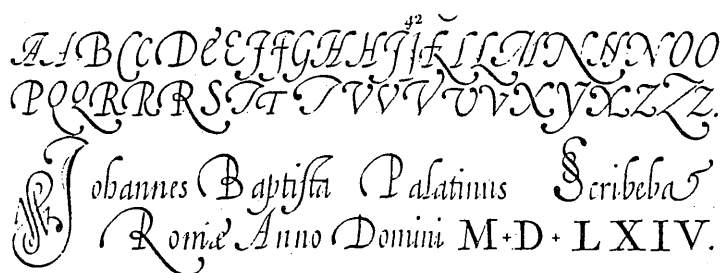 42
A A B C C D E E F F G H H I I K L L M N N N O O
P Q Q R R R S T T T V V V V V X Y X Z Z Z.
Johannes Baptiſta Palatinus Scribebat
Romæ Anno Domini M + D + LXIV.